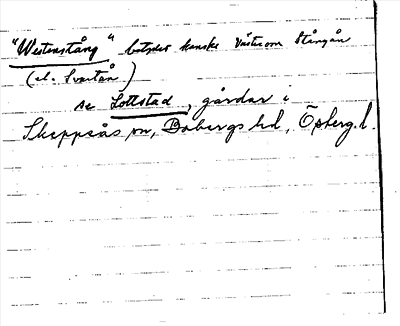 "Westanstång" betyder kanske väster om Stångån
(el. Svartån)
se Lottstad, gårdar i
Skeppsås sn, Bobergs hd, Österg. l.